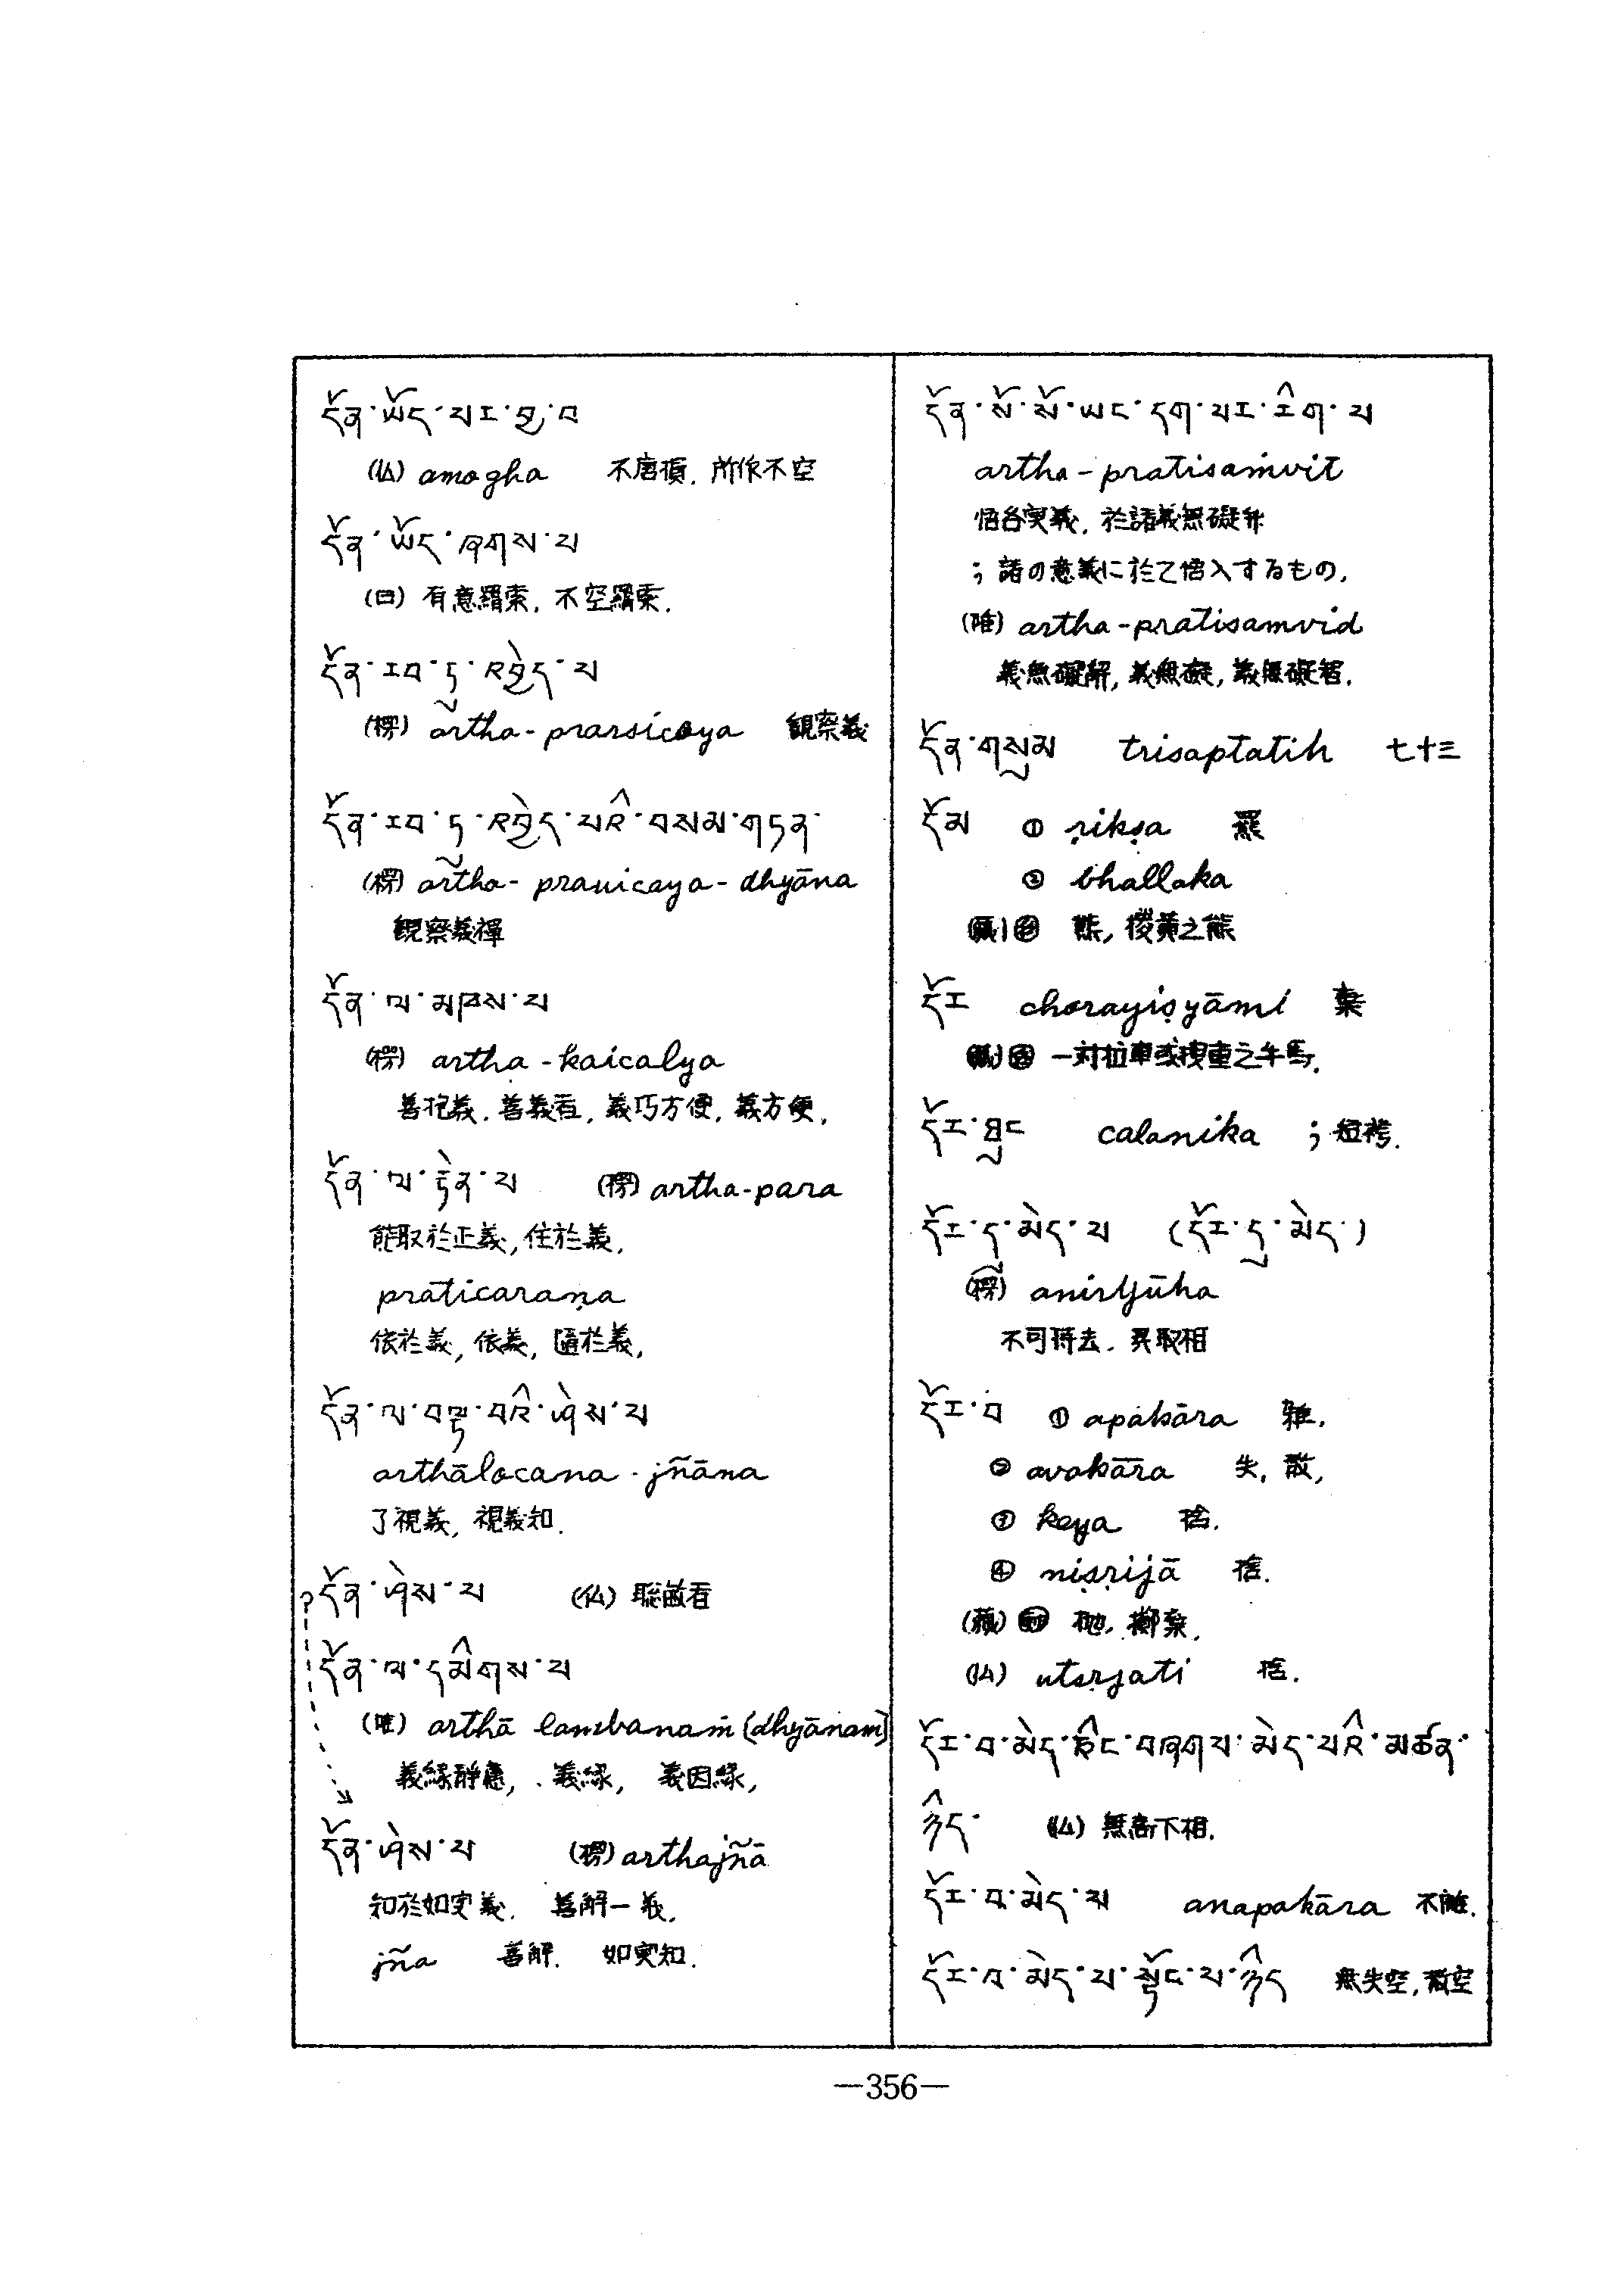 དོན་ཡོད་པར་བྱ་བ
(仏) amogha 不唐損. 所作不空
དོན་ཡོད་ཞགས་པ
(四) 有意羂索. 不空羂索.
དོན་རབ་ཏུ་འབྱེད་པ
(楞) artha-prarsicaya 観察義
དོན་རབ་ཏུ་འབྱེད་པའི་བསམ་གཏན་
(楞) artha-pravicaya-dhyāna
観察義禅
དོན་ལ་མཁས་པ
(楞) artha-kaicalya
義巧方便, 義方便,
དོན་ལ་རྟེན་པ (楞) artha-para
能取於正義, 住於義,
praticaraṇa
依於義, 依義, 随於義,
དོན་ལ་བལྟ་བའི་ཤེས་པ
arthālocana-jñāna
了視義, 視義知.
?དོན་ཤེས་པ (仏) 聡
དོན་ལ་དམིགས་པ
(唯) arthā lambanaṁ (dhyānam)
義縁静慮, 義縁, 義因縁,
དོན་ཤེས་པ (楞) arthajñā
知於如実義. 善解一義,
jña 善解. 如実知.
དོན་སོ་སོ་ཡང་དག་པར་རིག་པ
artha-pratisaṁvit
悟各実義, 於諸義無礙弁
; 諸の意義に於て悟入するもの,
(唯) artha-pratisamvid
義無礙解, 義無礙, 義無礙智.
དོན་གསུམ trisaptatih 七十三
དོམ ① ṛikṣa 羆
② bhallaka
(蔵) 熊, 之熊
དོར chorayiṣyāmi 棄
(蔵) 一対拉車或 之牛馬.
དོར་ཐུང calanika ; 短袴.
དོར་དུ་མེད་པ (དོར་དུ་མེད་)
(楞) aniryūha
不可得去. 異取相
དོར་བ ① apakāra 離.
② avakāra 失, 散,
③ keya 捨.
④ niṣṛijā 捨.
(蔵) 抛, 擲棄.
(仏) utsṛjati 捨.
དོར་བ་མེད་ཅིང་བཞག་པ་མེད་པའི་མཚན་
ཉིད་ (仏) 無高下相.
དོར་བ་མེད་པ anapakāra 不離.
དོར་བ་མེད་པ་སྟོང་པ་ཉིད 無失空, 散空
—356—